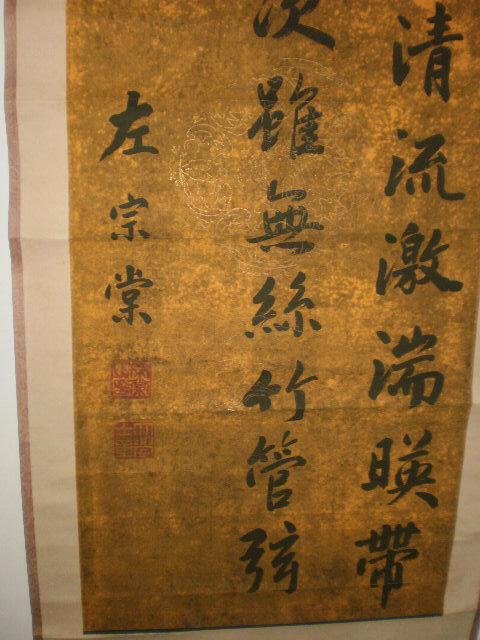 清流激湍暎帶
次雖無絲竹管弦
左宗棠